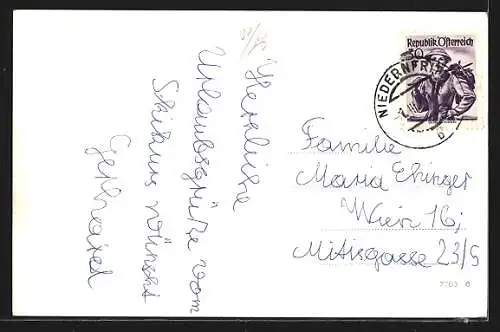 Republik Österreich
NIEDERNFRITZ
b
Herzliche
Urlaubsgrüße vom
Skikurs wünscht
Familie
Maria Ehinger
Wien 16;
Mitisgasse 23/5
7763 6